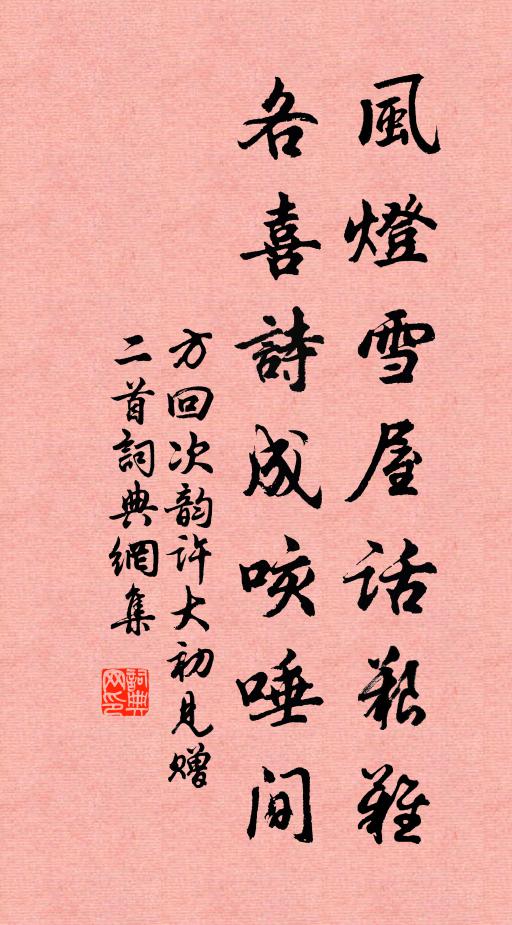 風燈雪屋話艱難
各喜詩成咳唾間
方回次韵许大初見赠
二首詞典網集
詞典网印